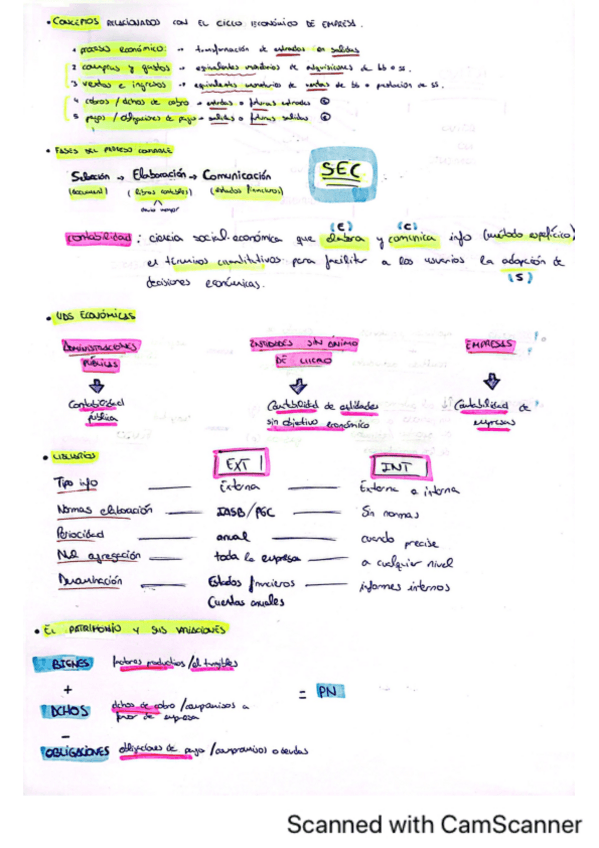 • CONCEPTOS RELACIONADOS CON EL CICLO ECONÓMICO DE EMPRESA.
1 proceso económico: → transformación de entradas en salidas
2 compras y gastos → equivalentes monetarios de adquisiciones de bb o ss.
3 ventas e ingresos → equivalentes monetarios de ventas de bb o prestación de ss.
4 cobros / dchos de cobro → entradas o futuras entradas €
5 pagos / obligaciones de pago → salidas o futuras salidas €
• FASES DEL PROCESO CONTABLE
Selección → Elaboración → Comunicación SEC
(document) (libros contables) (estados financieros)
diario mayor
(E) (C)
contabilidad: ciencia social-económica que elabora y comunica info (método específico)
en términos cuantitativos para facilitar a los usuarios la adopción de
(S)
decisiones económicas.
• UDS ECONÓMICAS
ADMINISTRACIONES PÚBLICAS ENTIDADES SIN ÁNIMO DE LUCRO EMPRESAS
Contabilidad pública Contabilidad de entidades sin objetivo económico Contabilidad de empresas
• USUARIOS EXT INT
Tipo info — Externa — Externa o interna
Normas elaboración — IASB/PGC — Sin normas
Periocidad — anual — cuando precise
Nivel agregación — toda la empresa — a cualquier nivel
Denominación — Estados financieros — informes internos
Cuentas anuales
• EL PATRIMONIO Y SUS VARIACIONES
BIENES factores productivos /el. tangibles
+ = PN
DCHOS dchos de cobro /compromisos a
favor de empresa
-
OBLIGACIONES obligaciones de pago /compromisos o deudas
Scanned with CamScanner